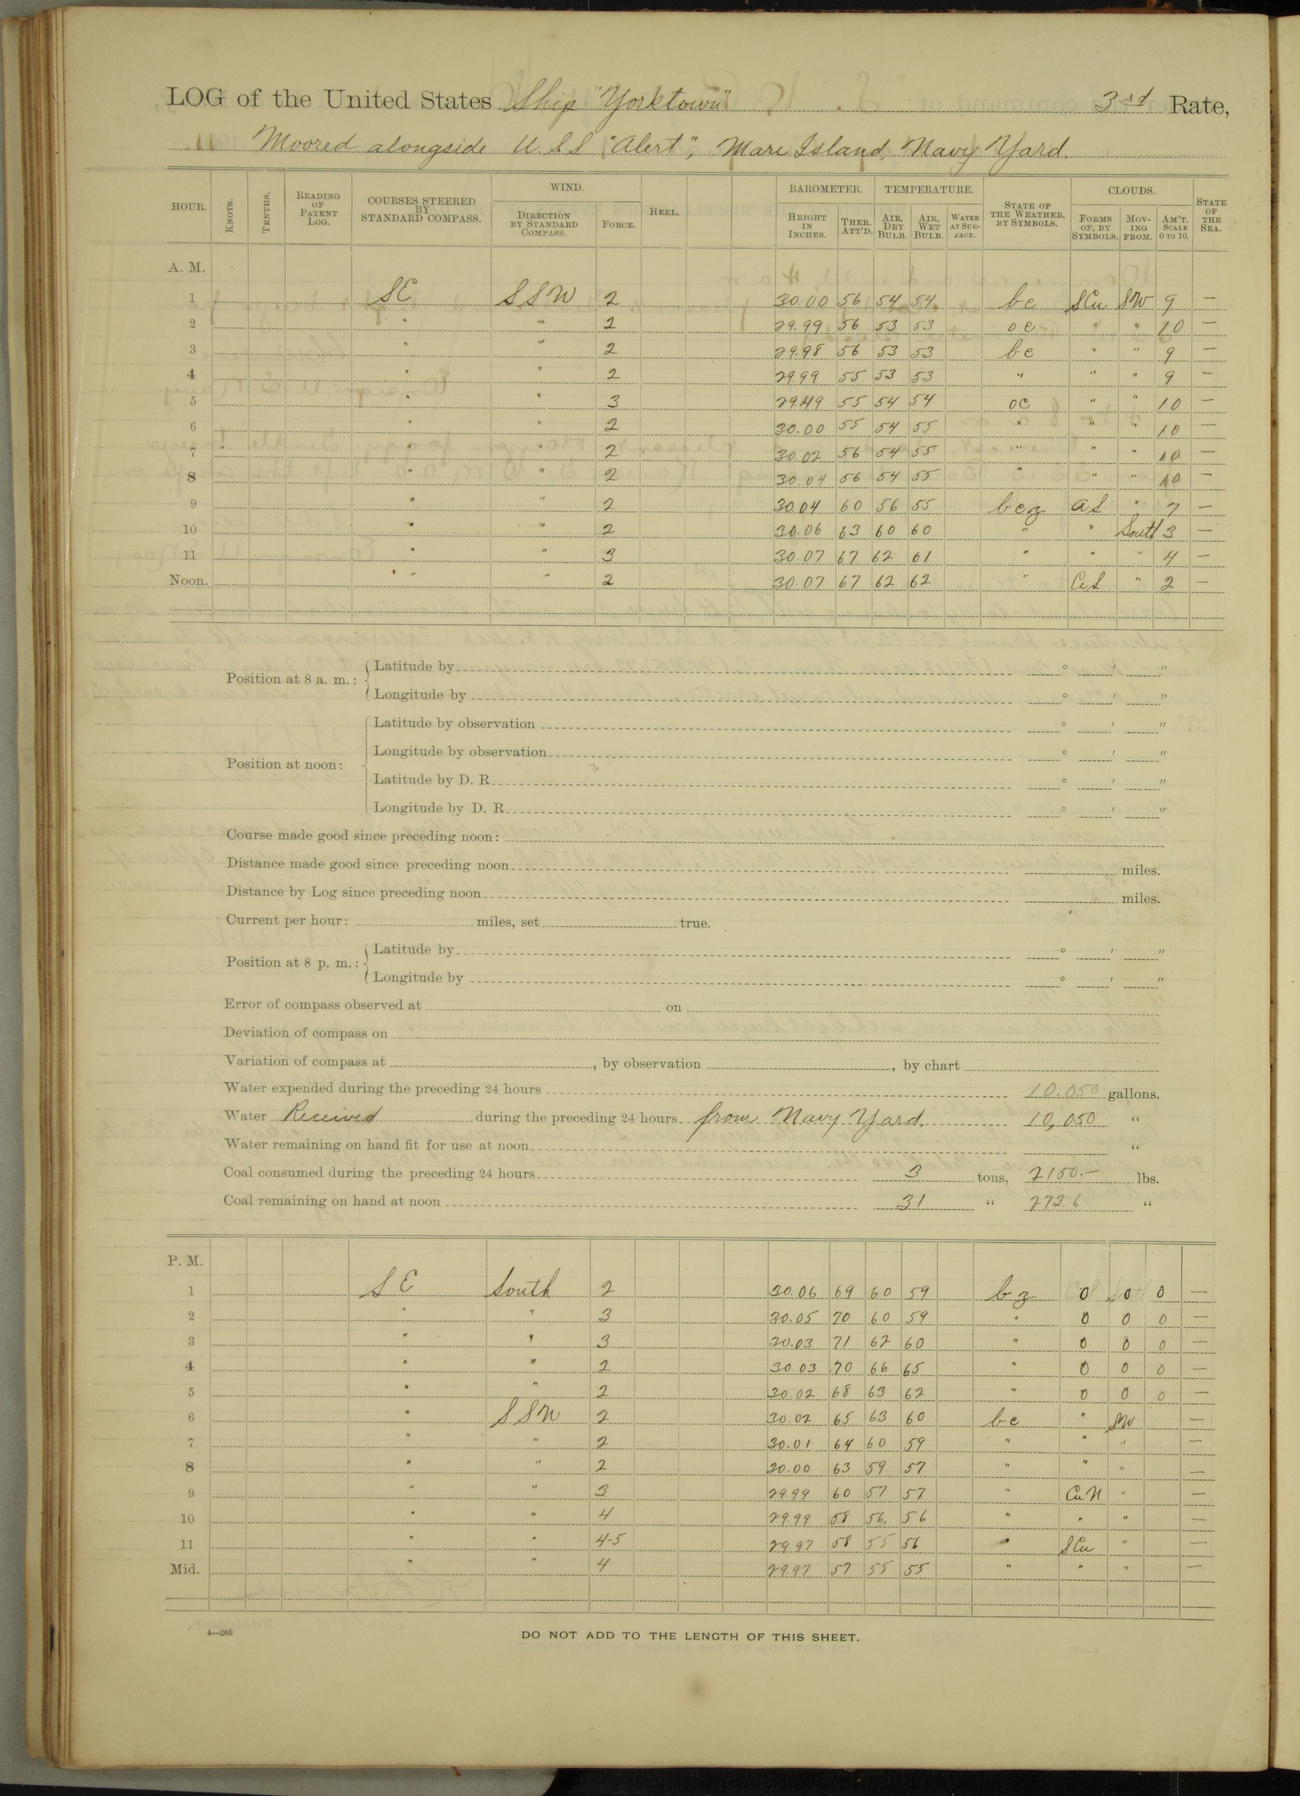 LOG of the United States Ship "Yorktown" 3rd Rate,
Moored alongside U.S.S. "Alert", Mare Island, Navy Yard.
HOUR. KNOTS. TENTHS. READING OF PATENT LOG. COURSES STEERED BY STANDARD COMPASS. WIND. DIRECTION BY STANDARD COMPASS. FORCE. HEEL. BAROMETER. HEIGHT IN INCHES. THER. ATT'D. TEMPERATURE. AIR, DRY BULB. AIR, WET BULB. WATER AT SURFACE. STATE OF THE WEATHER, BY SYMBOLS. CLOUDS. FORMS OF, BY SYMBOLS. MOVING FROM. AM'T. SCALE 0 TO 10. STATE OF THE SEA.
A. M.
1 SE SSW 2 30.00 56 54 54 bc SCu SW 9 —
2 " " 2 29.99 56 53 53 oc " " 10 —
3 " " 2 29.98 56 53 53 bc " " 9 —
4 " " 2 29.99 55 53 53 " " " 9 —
5 " " 3 29.49 55 54 54 oc " " 10 —
6 " " 2 30.00 55 54 55 " " " 10 —
7 " " 2 30.02 56 54 55 " " " 10 —
8 " " 2 30.04 56 54 55 " " " 10 —
9 " " 2 30.04 60 56 55 bcz AS " 7 —
10 " " 2 30.06 63 60 60 " " South 3 —
11 " " 3 30.07 67 62 61 " " " 4 —
Noon. " " 2 30.07 67 62 62 " CiS " 2 —
Position at 8 a. m.: Latitude by ° ′ ″
Longitude by ° ′ ″
Position at noon: Latitude by observation ° ′ ″
Longitude by observation ° ′ ″
Latitude by D. R. ° ′ ″
Longitude by D. R. ° ′ ″
Course made good since preceding noon:
Distance made good since preceding noon miles.
Distance by Log since preceding noon miles.
Current per hour: miles, set true.
Position at 8 p. m.: Latitude by ° ′ ″
Longitude by ° ′ ″
Error of compass observed at on
Deviation of compass on
Variation of compass at , by observation , by chart
Water expended during the preceding 24 hours 10.050 gallons.
Water Received during the preceding 24 hours from Navy Yard. 10,050 "
Water remaining on hand fit for use at noon "
Coal consumed during the preceding 24 hours 3 tons, 2150.— lbs.
Coal remaining on hand at noon 31 " 2736 "
P. M.
1 SE South 2 30.06 69 60 59 bz 0 0 0 —
2 " " 3 30.05 70 60 59 " 0 0 0 —
3 " " 3 30.03 71 62 60 " 0 0 0 —
4 " " 2 30.03 70 66 65 " 0 0 0 —
5 " " 2 30.02 68 63 62 " 0 0 0 —
6 " SSW 2 30.02 65 63 60 bc " SW —
7 " " 2 30.01 64 60 59 " " " —
8 " " 2 30.00 63 59 57 " " " —
9 " " 3 29.99 60 57 57 " CuN " —
10 " " 4 29.99 58 56. 56 " " " —
11 " " 4-5 29.97 58 55 56 " SCu " —
Mid. " " 4 29.97 57 55 55 " " " —
4—265
DO NOT ADD TO THE LENGTH OF THIS SHEET.